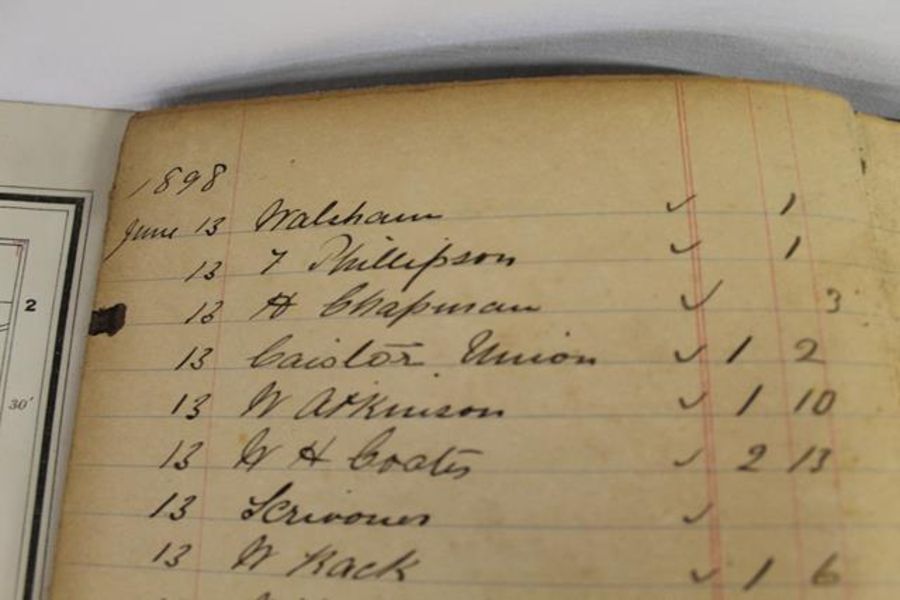 1898
June 13 Walsham ✓ 1
13 F Phillipson ✓ 1
13 H Chapman ✓ 3
13 Caistor Union ✓ 1 2
13 W Atkinson ✓ 1 10
13 W H Coates ✓ 2 13
13 ✓
13 W Rack ✓ 1 6
2
30'